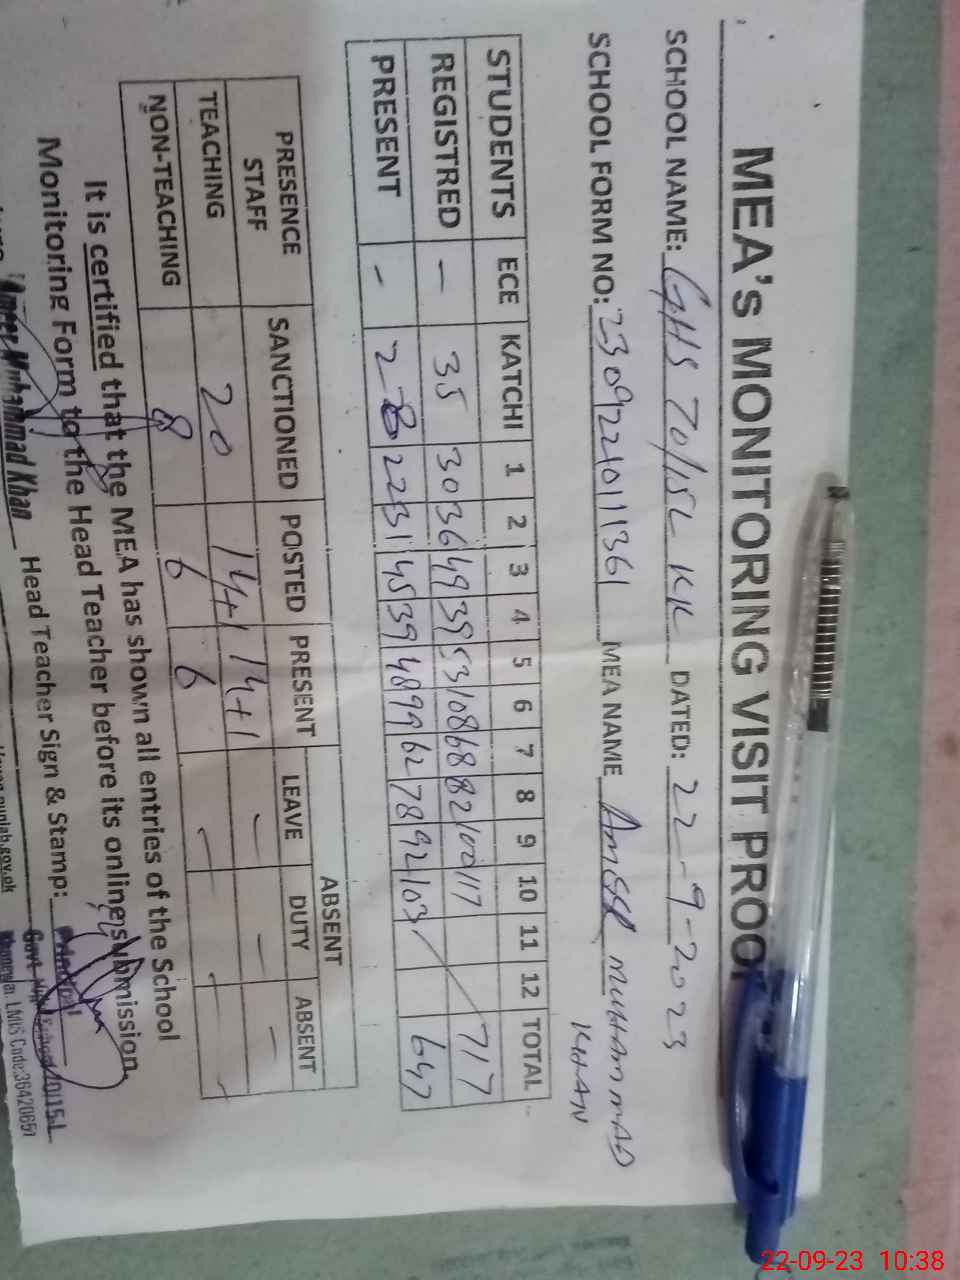 MEA's MONITORING VISIT PROOF
SCHOOL NAME: GHS 70/15L KK DATED: 22-9-2023
SCHOOL FORM NO: 23092201011361 MEA NAME Ameer MUHAMMAD KHAN
STUDENTS ECE KATCHI 1 2 3 4 5 6 7 8 9 10 11 12 TOTAL
REGISTRED - 35 30 36 49 39 53 108 68 82 100 117 717
PRESENT - 28 22 31 45 39 48 99 62 78 92 103 647
PRESENCE STAFF SANCTIONED POSTED PRESENT ABSENT
LEAVE DUTY ABSENT
TEACHING 20 14+1 14+1 - - -
NON-TEACHING 8 6 6 - - -
It is certified that the MEA has shown all entries of the School
Monitoring Form to the Head Teacher before its online submission.
Ameer Muhammad Khan Head Teacher Sign & Stamp:
Govt. High School 70/15-L
LMIS Code:36420651
22-09-23 10:38